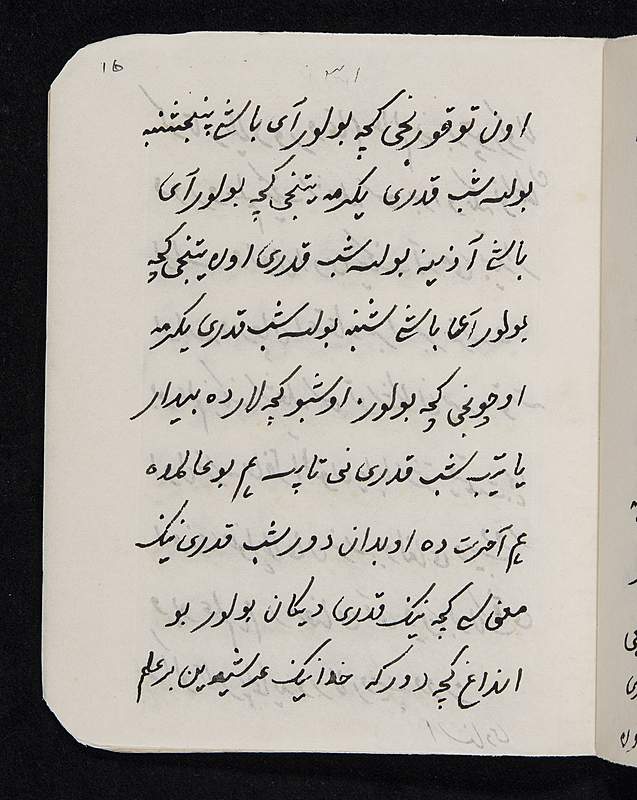 ۱۶
۳۱
اون توقوزنجی کچه بولور آی باشی پنجشنبه
بولسه شب قدری یکرمه یتنجی کچه بولور آی
باشی آذینه بولسه شب قدری اون یتنجی کچه
بولور آی باشی شنبه بولسه شب قدری یکرمه
اوچونجی کچه بولور. اوشبو کچه لارده بیدار
یاتیب شب قدری نی تاپسه هم بو عالمده
هم آخرت ده اوبدان دور شب قدری نینک
معنی سی کچه نینک قدری دیکان بولور بو
انداغ کچه دورکه خداینک عرشیدین بر علم